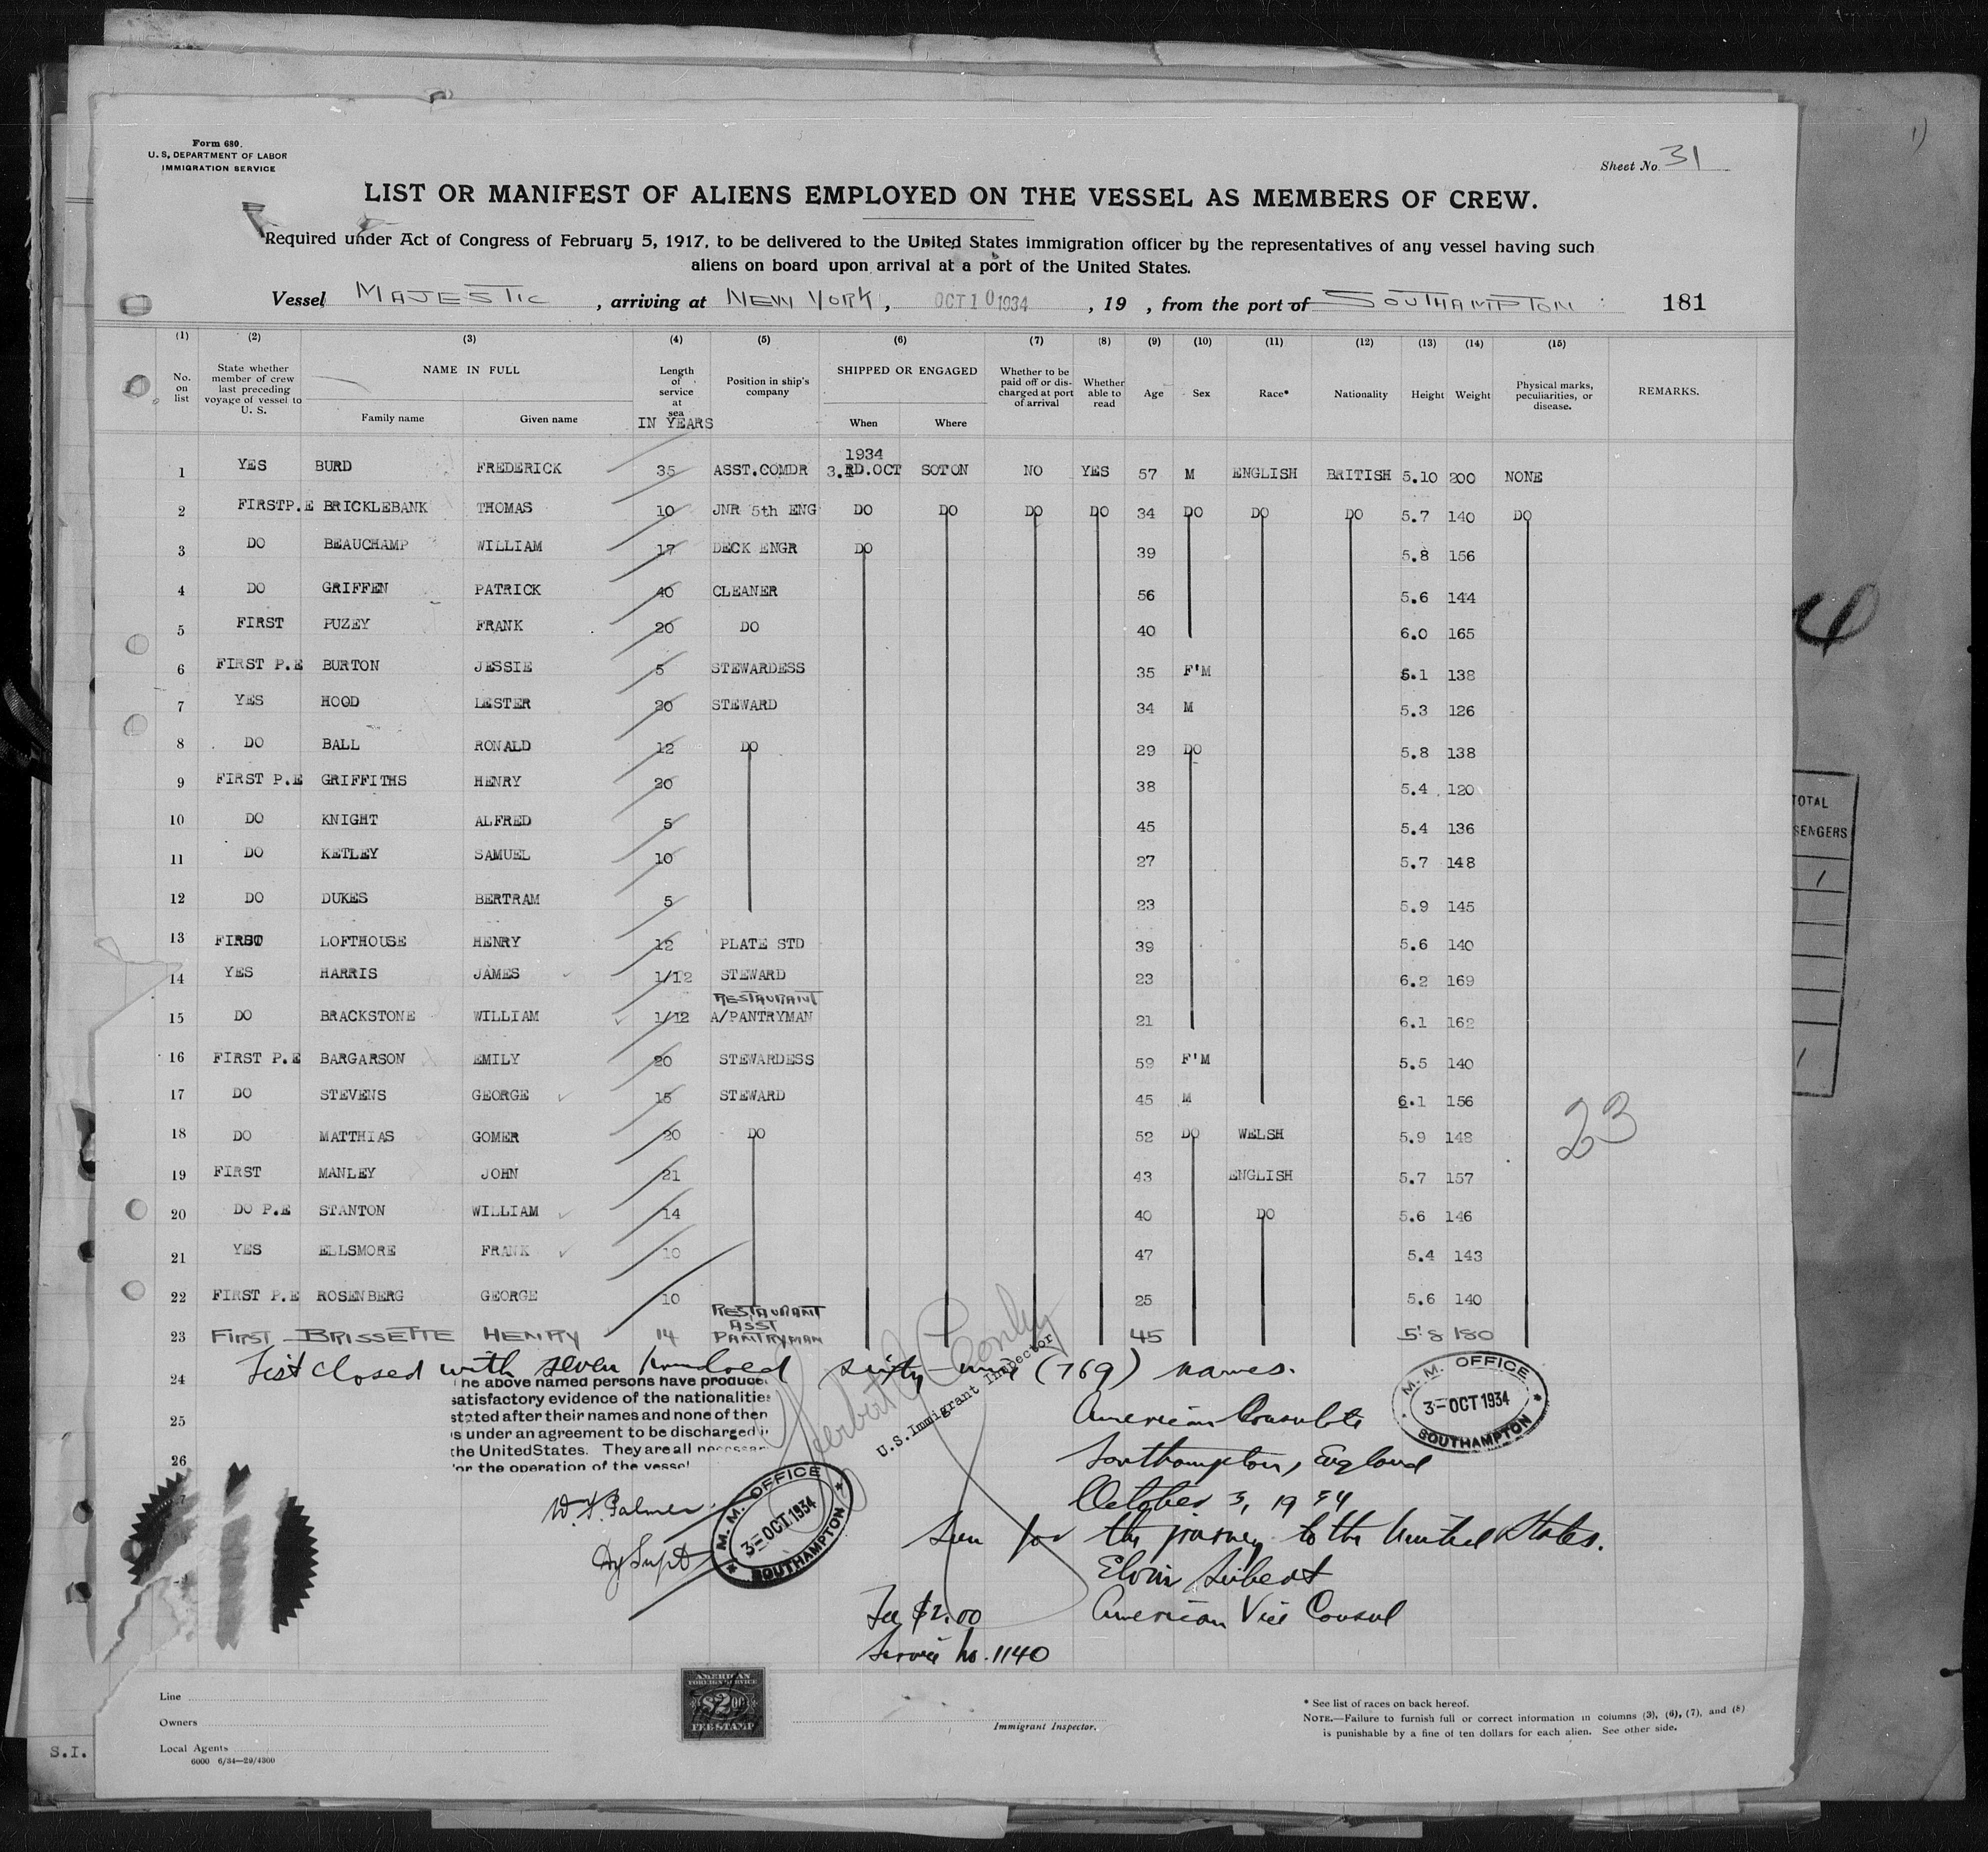 Form 680.
U. S. DEPARTMENT OF LABOR
IMMIGRATION SERVICE
Sheet No. 31
LIST OR MANIFEST OF ALIENS EMPLOYED ON THE VESSEL AS MEMBERS OF CREW.
Required under Act of Congress of February 5, 1917, to be delivered to the United States immigration officer by the representatives of any vessel having such
aliens on board upon arrival at a port of the United States.
Vessel MAJESTIC , arriving at NEW YORK, OCT 10 1934 , 19 , from the port of SOUTHAMPTON 181
(1) (2) (3) (4) (5) (6) (7) (8) (9) (10) (11) (12) (13) (14) (15)
No. on list State whether member of crew last preceding voyage of vessel to U. S. NAME IN FULL Family name Given name Length of service at sea IN YEARS Position in ship's company SHIPPED OR ENGAGED When Where Whether to be paid off or discharged at port of arrival Whether able to read Age Sex Race* Nationality Height Weight Physical marks, peculiarities, or disease. REMARKS.
1934
1 YES BURD FREDERICK 35 ASST.COMDR 3.RD.OCT SOTON NO YES 57 M ENGLISH BRITISH 5.10 200 NONE
2 FIRSTP.E BRICKLEBANK THOMAS 10 JNR 5th ENG DO DO DO DO 34 DO DO DO 5.7 140 DO
3 DO BEAUCHAMP WILLIAM 17 DECK ENGR DO 39 5.8 156
4 DO GRIFFEN PATRICK 40 CLEANER 56 5.6 144
5 FIRST PUZEY FRANK 20 DO 40 6.0 165
6 FIRST P.E BURTON JESSIE 5 STEWARDESS 35 F'M 5.1 138
7 YES HOOD LESTER 20 STEWARD 34 M 5.3 126
8 DO BALL RONALD 12 DO 29 DO 5.8 138
9 FIRST P.E GRIFFITHS HENRY 20 38 5.4 120
10 DO KNIGHT ALFRED 5 45 5.4 136
11 DO KETLEY SAMUEL 10 27 5.7 148
12 DO DUKES BERTRAM 5 23 5.9 145
13 FIRST LOFTHOUSE HENRY 12 PLATE STD 39 5.6 140
14 YES HARRIS JAMES 1/12 STEWARD 23 6.2 169
RESTAURANT
15 DO BRACKSTONE WILLIAM 1/12 A/PANTRYMAN 21 6.1 162
16 FIRST P.E BARGARSON EMILY 20 STEWARDESS 59 F'M 5.5 140
17 DO STEVENS GEORGE 15 STEWARD 45 M 6.1 156
23
18 DO MATTHIAS GOMER 20 DO 52 DO WELSH 5.9 148
19 FIRST MANLEY JOHN 21 43 ENGLISH 5.7 157
20 DO P.E STANTON WILLIAM 14 40 DO 5.6 146
21 YES ELLSMORE FRANK 10 47 5.4 143
22 FIRST P.E ROSENBERG GEORGE 10 25 5.6 140
23 FIRST BRISSETTE HENRY 14 RESTAURANT ASST PANTRYMAN 45 5'8 180
24 List closed with seven hundred sixty nine (769) names.
The above named persons have produced
satisfactory evidence of the nationalities
stated after their names and none of them
is under an agreement to be discharged in
the United States. They are all necessary
for the operation of the vessel
25
26
U.S. Immigrant Inspector
M. M. OFFICE
3-OCT 1934
SOUTHAMPTON
American Consulate
Southampton, England
October 3, 1934
W. F. Palmer
Dy Supt
M. M. OFFICE
3-OCT 1934
SOUTHAMPTON
Seen for the journey to the United States.
Elvin Seibert
American Vice Consul
Fee $2.00
Service No. 1140
AMERICAN
FOREIGN SERVICE
$2.00
FEE STAMP
Line
Owners
Local Agents
6000 6/34—29/4300
Immigrant Inspector.
* See list of races on back hereof.
NOTE.—Failure to furnish full or correct information in columns (3), (6), (7), and (8)
is punishable by a fine of ten dollars for each alien. See other side.
S.I.
TOTAL
SENGERS
1
1